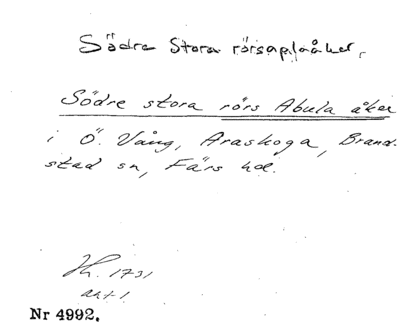 Södre Stora rörsaplaåker.
Södre stora rörs Abula åker
i Ö. Vång, Araskoga, Brand-
stad sn, Färs hd.
Lh. 1731
akt 1.
Nr 4992.